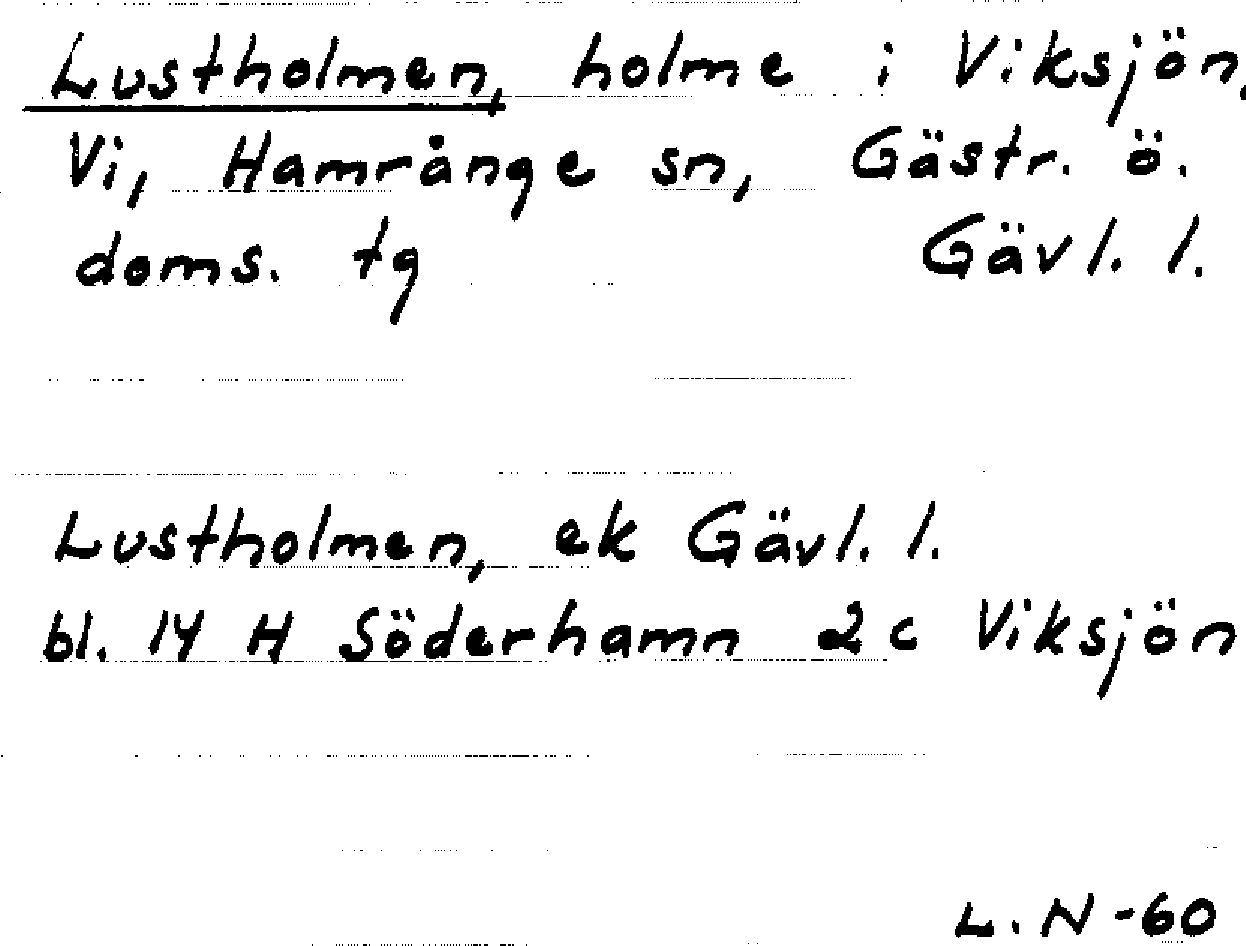 Lustholmen, holme i Viksjön,
Vi, Hamrånge sn, Gästr. ö.
doms. tg Gävl. l.
Lustholmen, ek Gävl. l.
bl. 14 H Söderhamn 2 c Viksjön
L. N -60